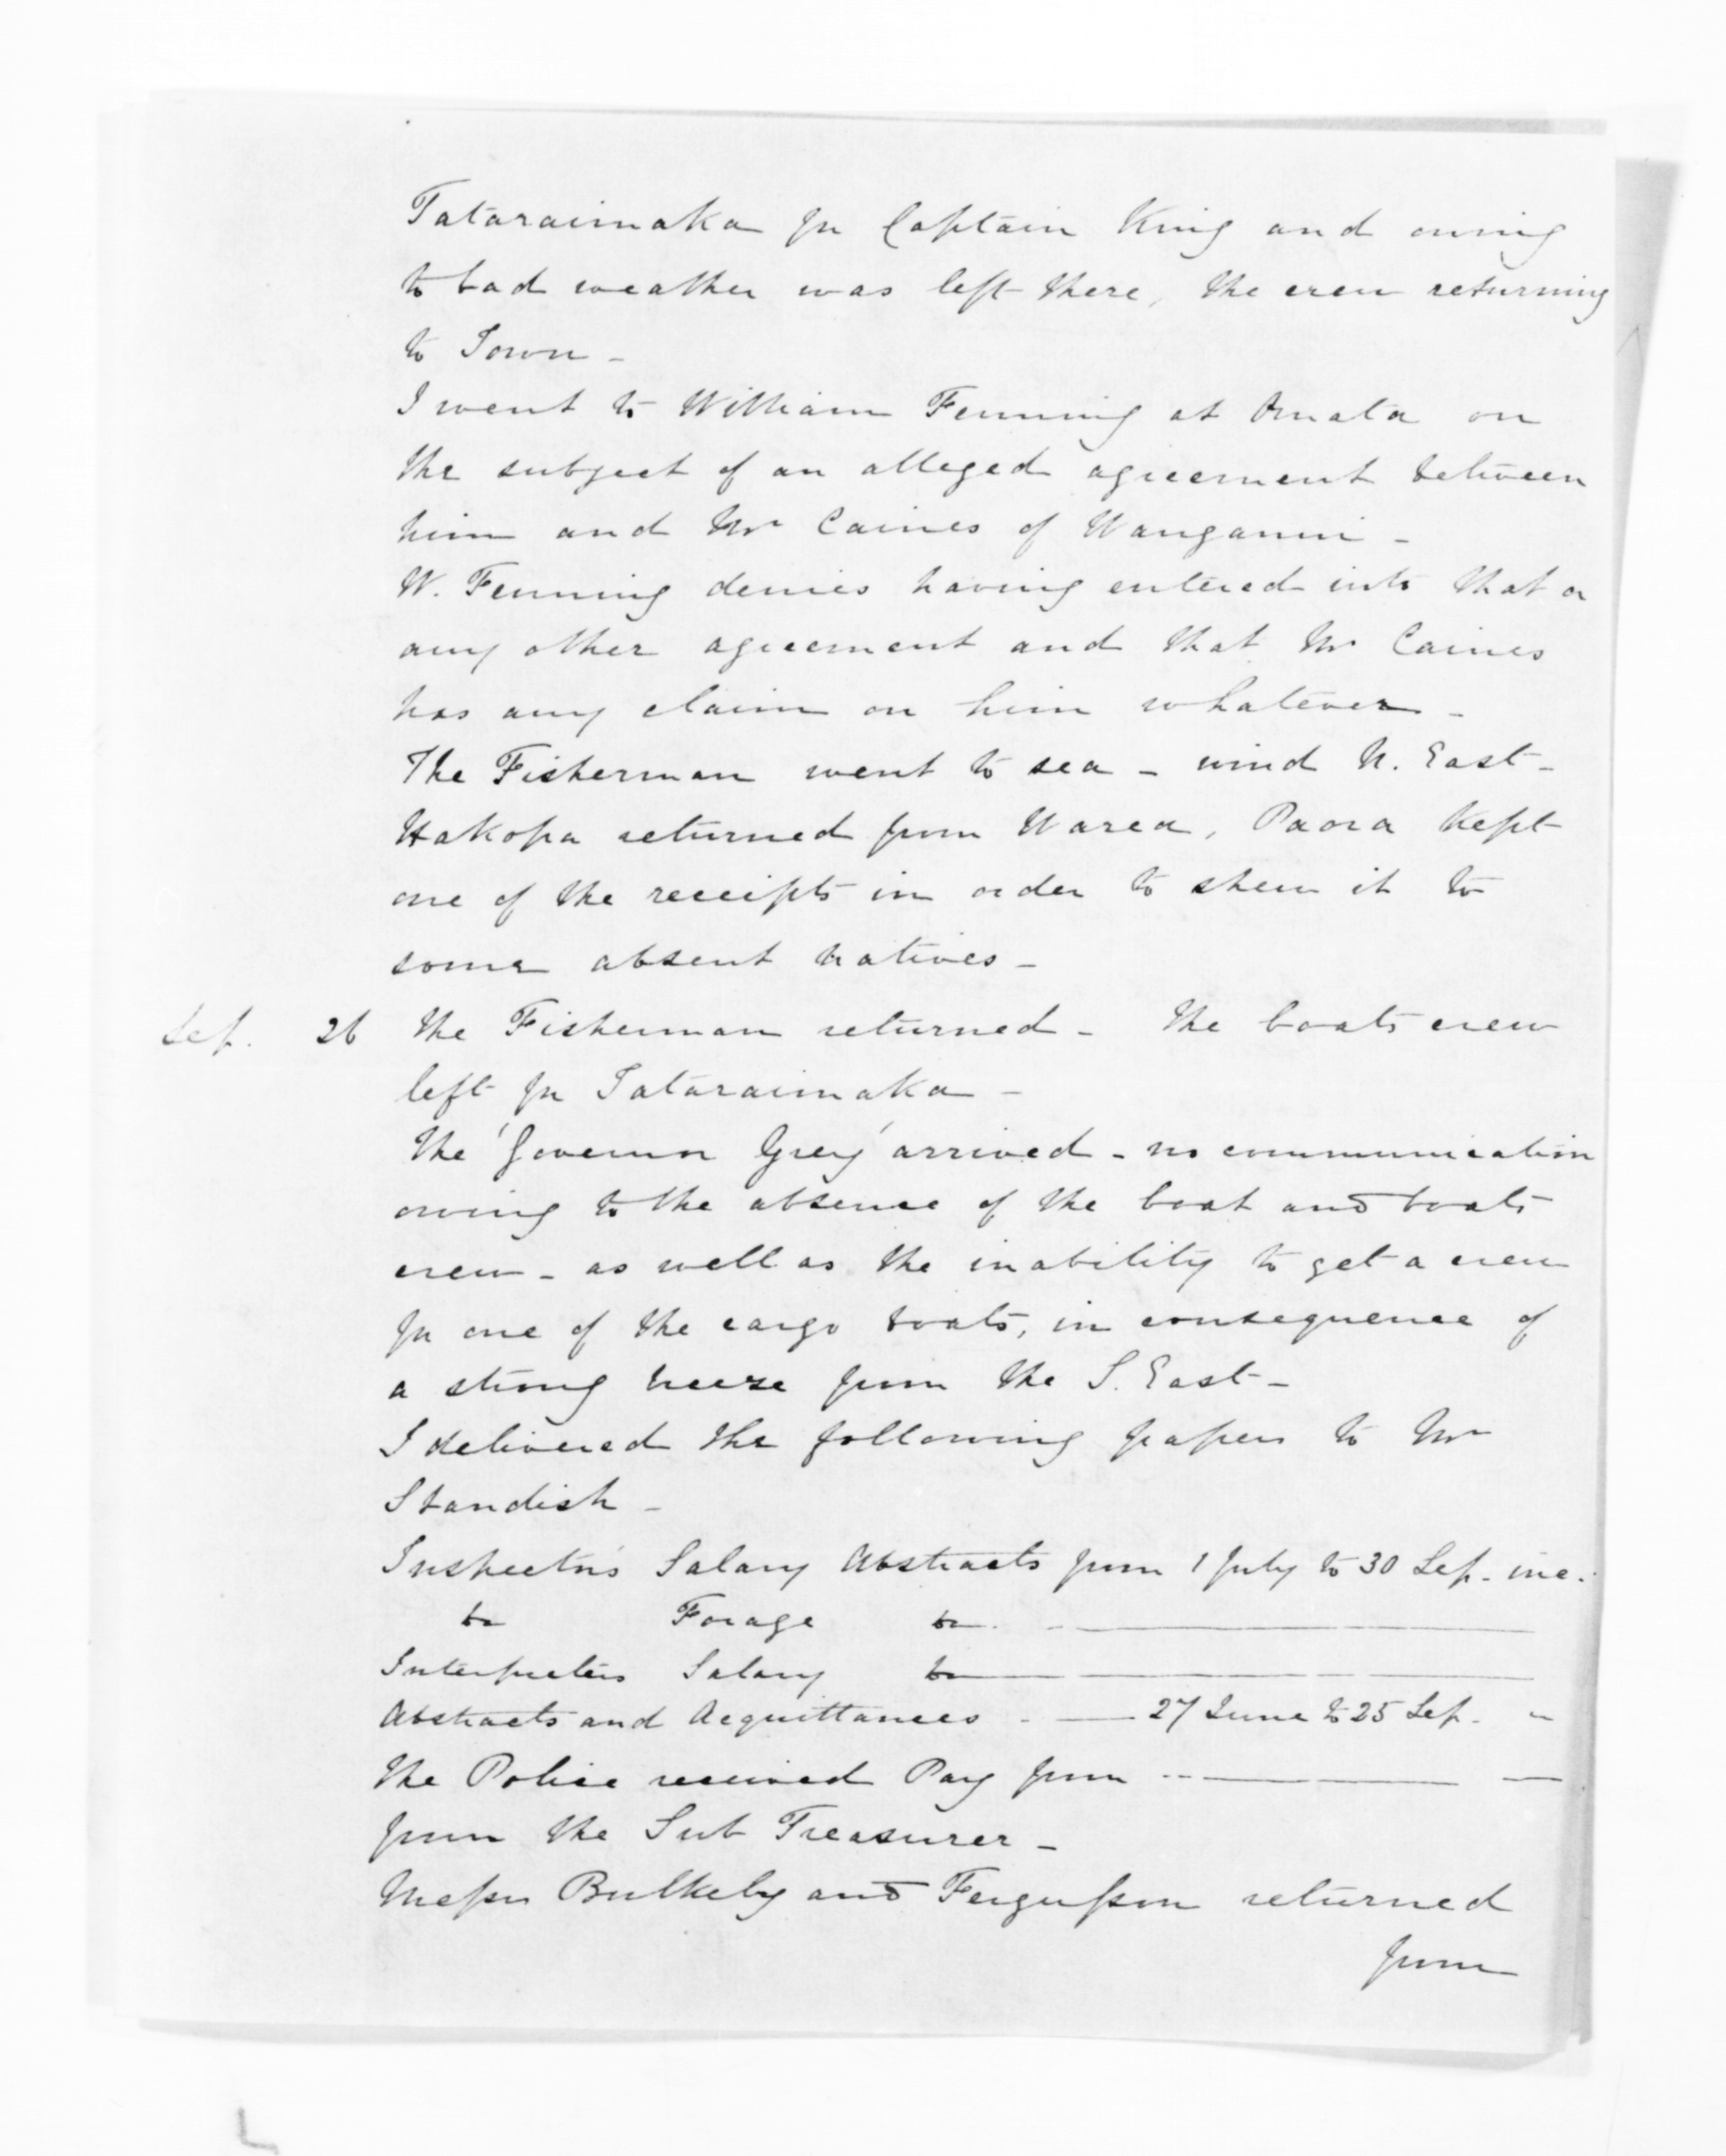 Tataraimaka for Captain King and owing
to bad weather was left there, the crew returning
to Town -
I went to William Fenning at Omata on
the subject of an alleged agreement between
him and Mr Caines of Wanganui -
W. Fenning denies having entered into that or
any other agreement and that Mr Caines
has any claim on him whatever -
The Fisherman went to sea - wind N. East -
Hakopa returned from Warea, Paora kept
one of the receipts in order to shew it to
some absent natives -
Sep. 26 The Fisherman returned - The boats crew
left for Tataraimaka -
The 'Governor Grey' arrived - no communication
owing to the absence of the boat and boats
crew - as well as the inability to get a crew
for one of the cargo boats, in consequence of
a strong breeze from the S. East -
I delivered the following papers to Mr
Standish -
Inspector's Salary Abstracts from 1 July to 30 Sep. inc.
Do Forage Do. - ———
Interpreters Salary Do ———
Abstracts and Acquittances - — 27 June to 25 Sep. "
The Police received Pay from -- ——— —
from the Sub Treasurer -
Messrs Bulkeley and Fergusson returned
from